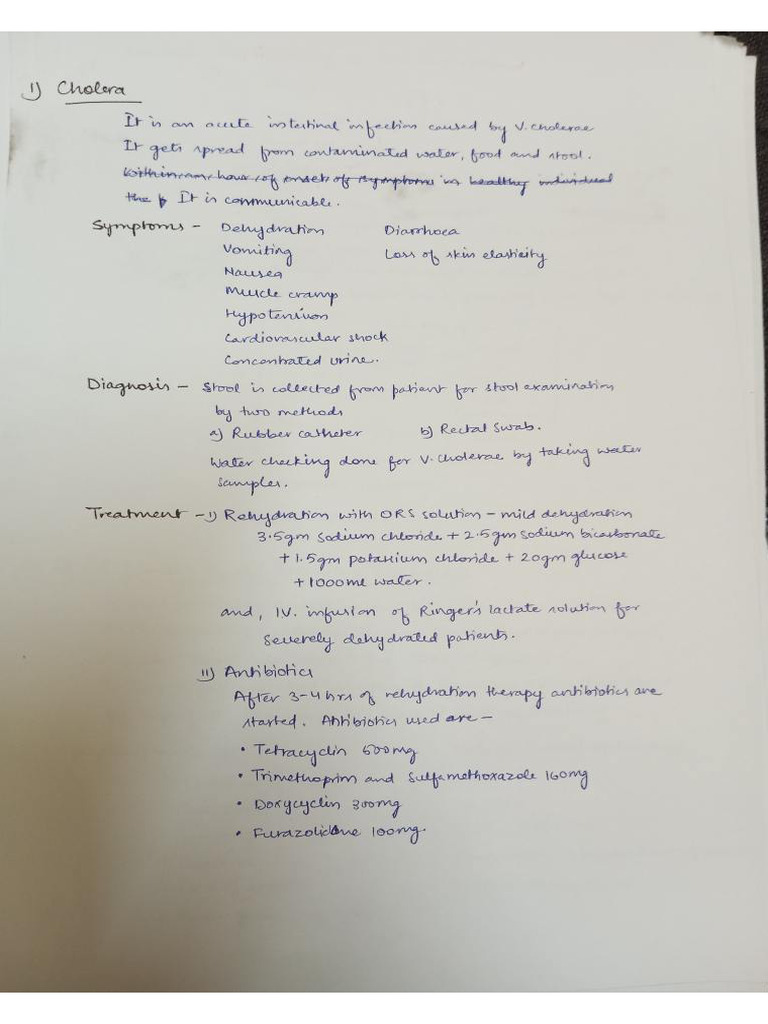 1) Cholera
It is an acute intestinal infection caused by V. cholerae
It gets spread from contaminated water, food and stool.
Within an hour of onset of symptoms in healthy individual
the It is communicable.
Symptoms - Dehydration Diarrhoea
Vomiting Loss of skin elasticity
Nausea
Muscle cramp
Hypotension
Cardiovascular shock
Concentrated urine.
Diagnosis - Stool is collected from patient for stool examination
by two methods
a) Rubber catheter b) Rectal Swab.
Water checking done for V. cholerae by taking water
samples.
Treatment - i) Rehydration with ORS solution - mild dehydration
3.5gm sodium chloride + 2.5gm sodium bicarbonate
+ 1.5gm potassium chloride + 20gm glucose
+ 1000ml water.
and, I.V. infusion of Ringer's lactate solution for
severely dehydrated patients.
ii) Antibiotics
After 3-4 hrs of rehydration therapy antibiotics are
started. Antibiotics used are -
• Tetracyclin 500mg
• Trimethoprim and Sulfamethoxazole 160mg
• Doxycyclin 300mg
• Furazolidone 100mg.